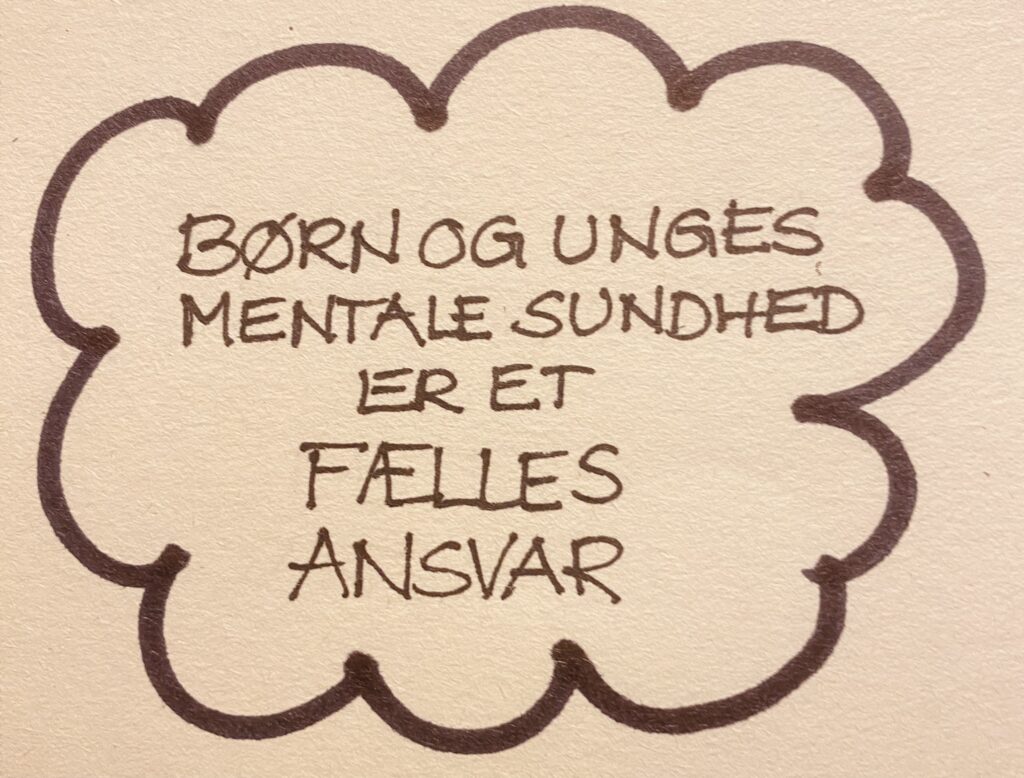 BØRN OG UNGES
MENTALE SUNDHED
ER ET
FÆLLES
ANSVAR